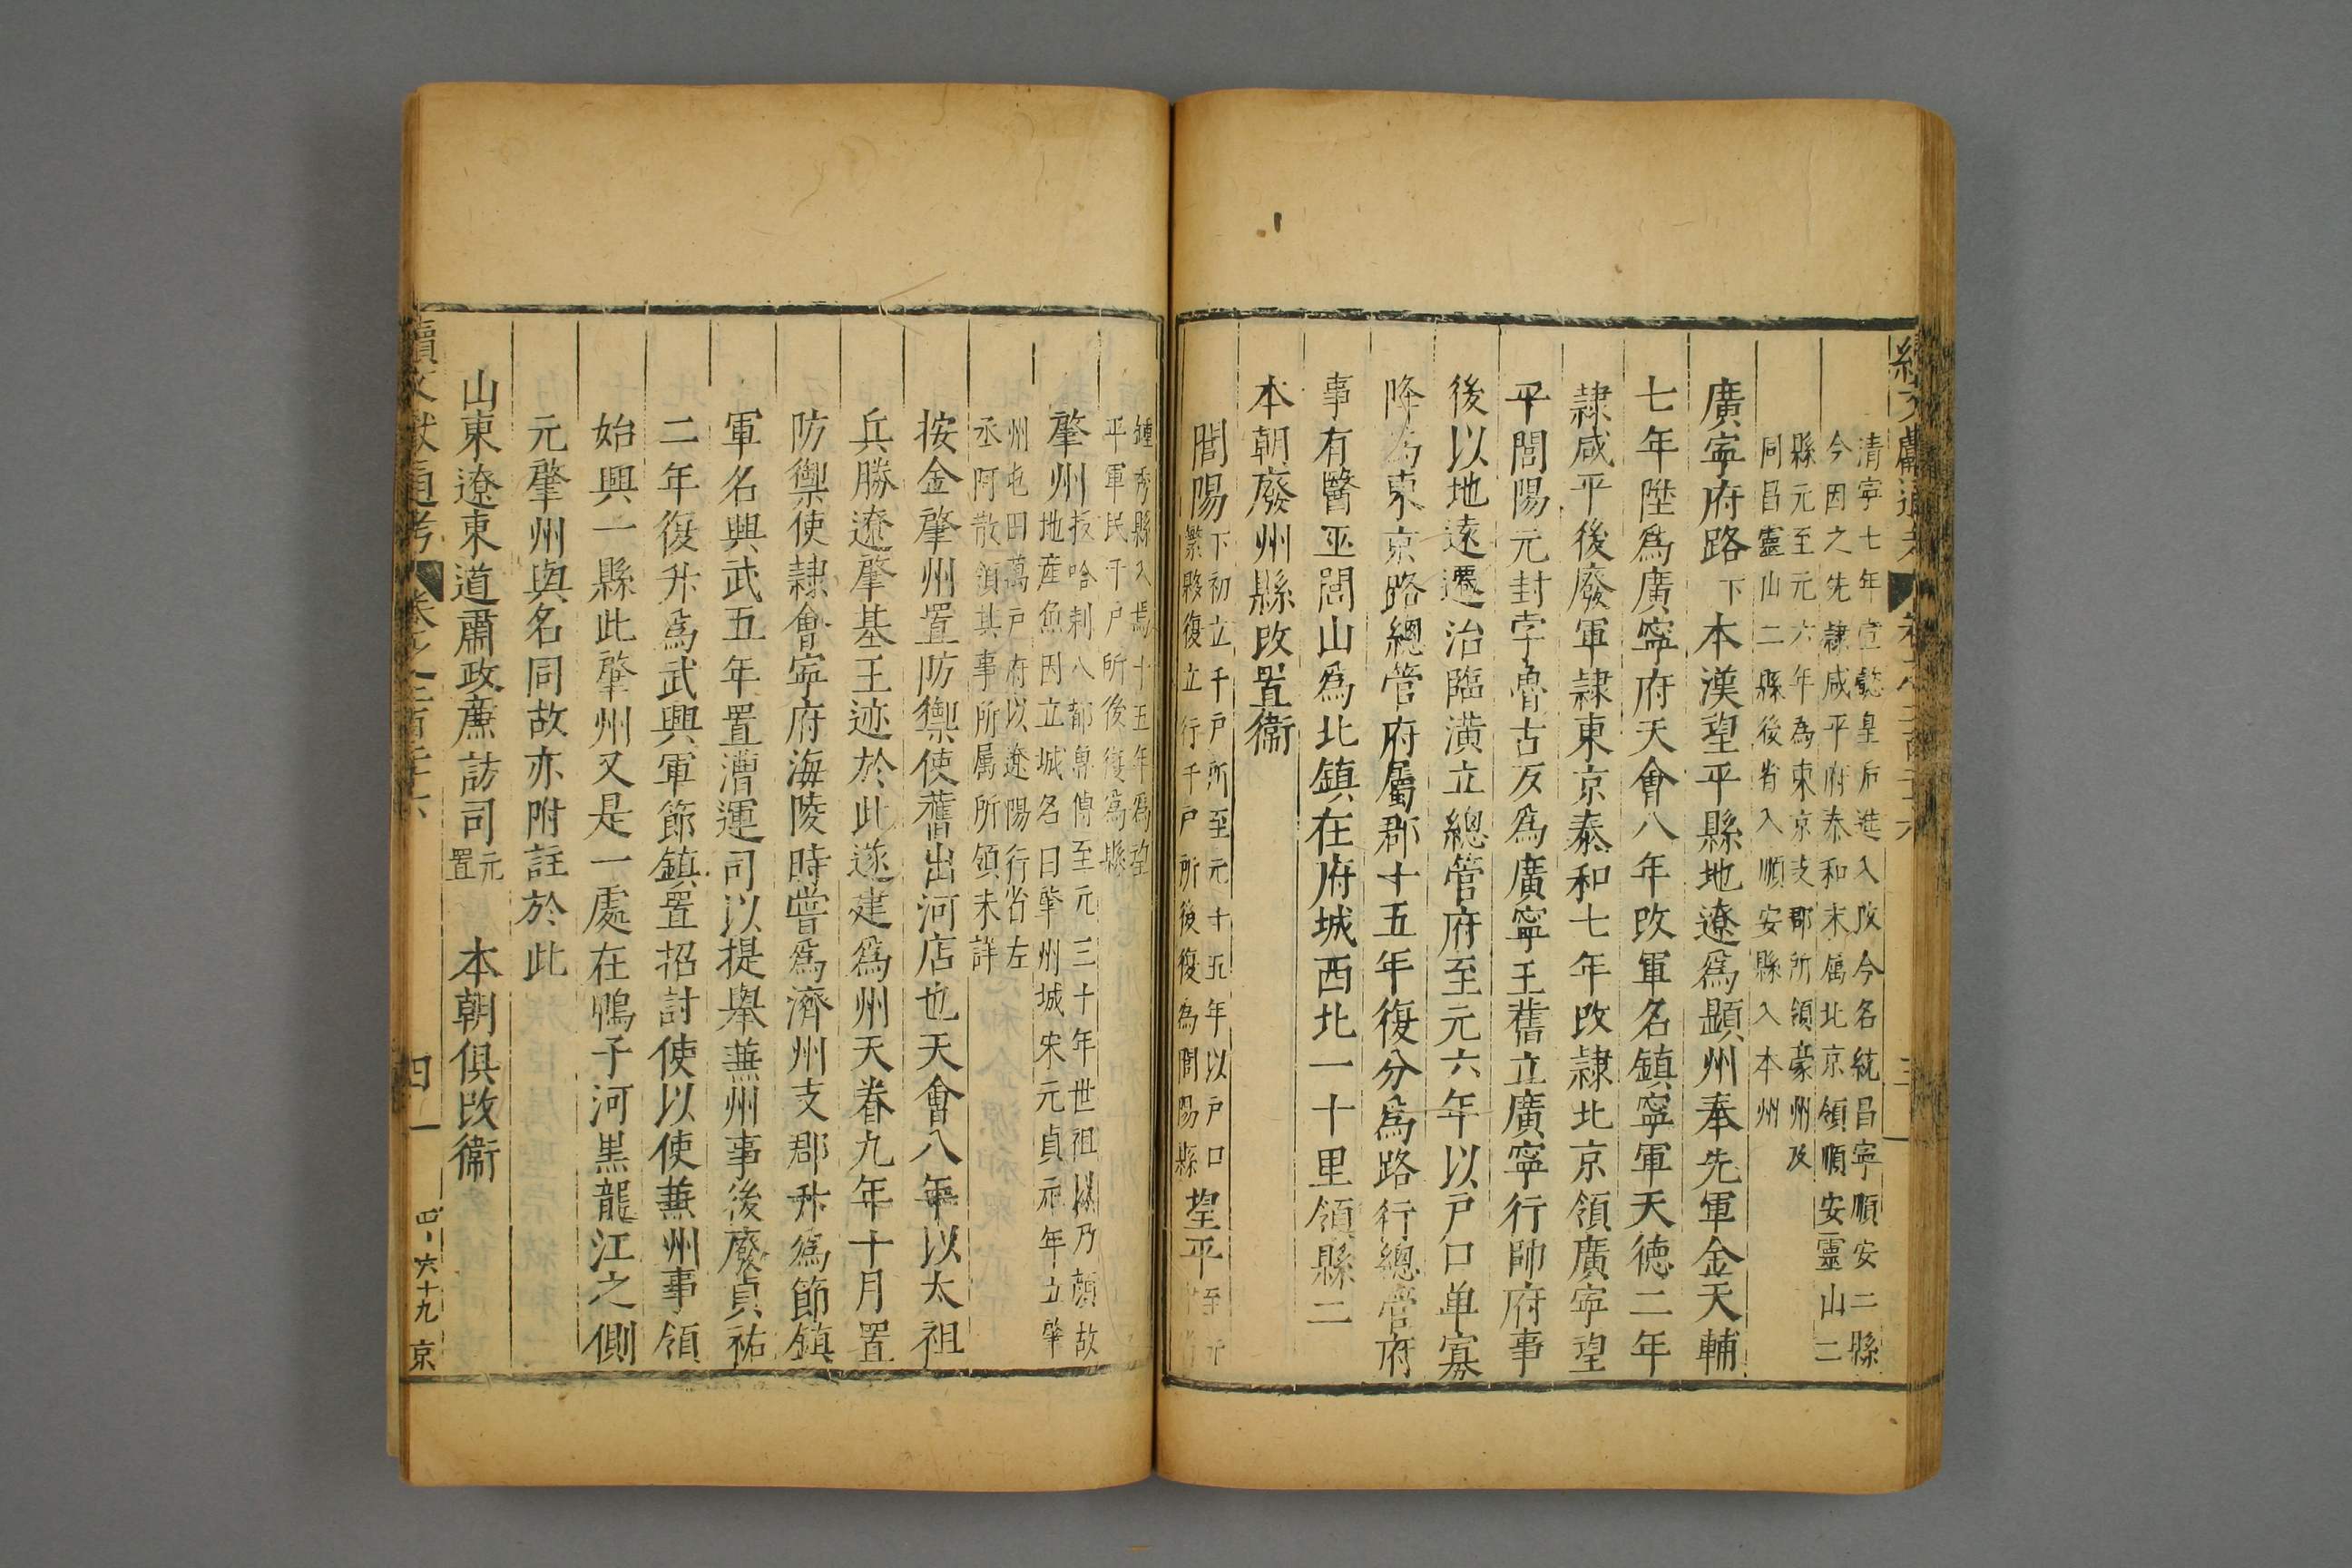 清寧七年宣懿皇后進入改今名統昌寧順安二縣
今因之先隸咸平府泰和末属北京領順安靈山二
縣元至元六年為東京支郡所領豪州及
同昌靈山二縣後省入順安縣入本州
廣寧府路下本漢望平縣地遼爲顯州奉先軍金天輔
七年陞爲廣寧府天會八年改軍名鎮寧軍天德二年
隸咸平後廢軍隸東京泰和七年改隸北京領廣寧望
平閭陽元封孛魯古歹爲廣寧王舊立廣寧行帥府事
後以地遠遷治臨潢立總管府至元六年以戶口单寡
降爲東京路總管府屬郡十五年復分爲路行總管府
事有醫巫閭山爲北鎮在府城西北一十里領縣二
本朝廢州縣改置衞
閭陽下初立千戶所至元十五年以戶口
繁夥復立行千戶所後復為閭陽縣望平至元
鍾秀縣入焉十五年爲望
平軍民千戶所後復爲縣
肇州按哈剌八都魯傳至元三十年世祖以乃顏故
地産魚因立城名曰肇州城宋元貞元年立肇
州屯田萬戶府以遼陽行省左
丞阿散領其事所属所領未詳
按金肇州置防禦使舊出河店也天會八年以太祖
兵勝遼肇基王迹於此遂建爲州天眷九年十月置
防禦使隸會寧府海陵時嘗爲濟州支郡升爲節鎮
軍名興武五年置漕運司以提舉兼州事後廢貞祐
二年復升爲武興軍節鎮置招討使以使兼州事領
始興一縣此肇州又是一處在鴨子河黑龍江之側
元肇州與名同故亦附註於此
山東遼東道肅政亷訪司元置　本朝俱改衞
續文獻通考　卷之二百二十六　四　四六十九　京